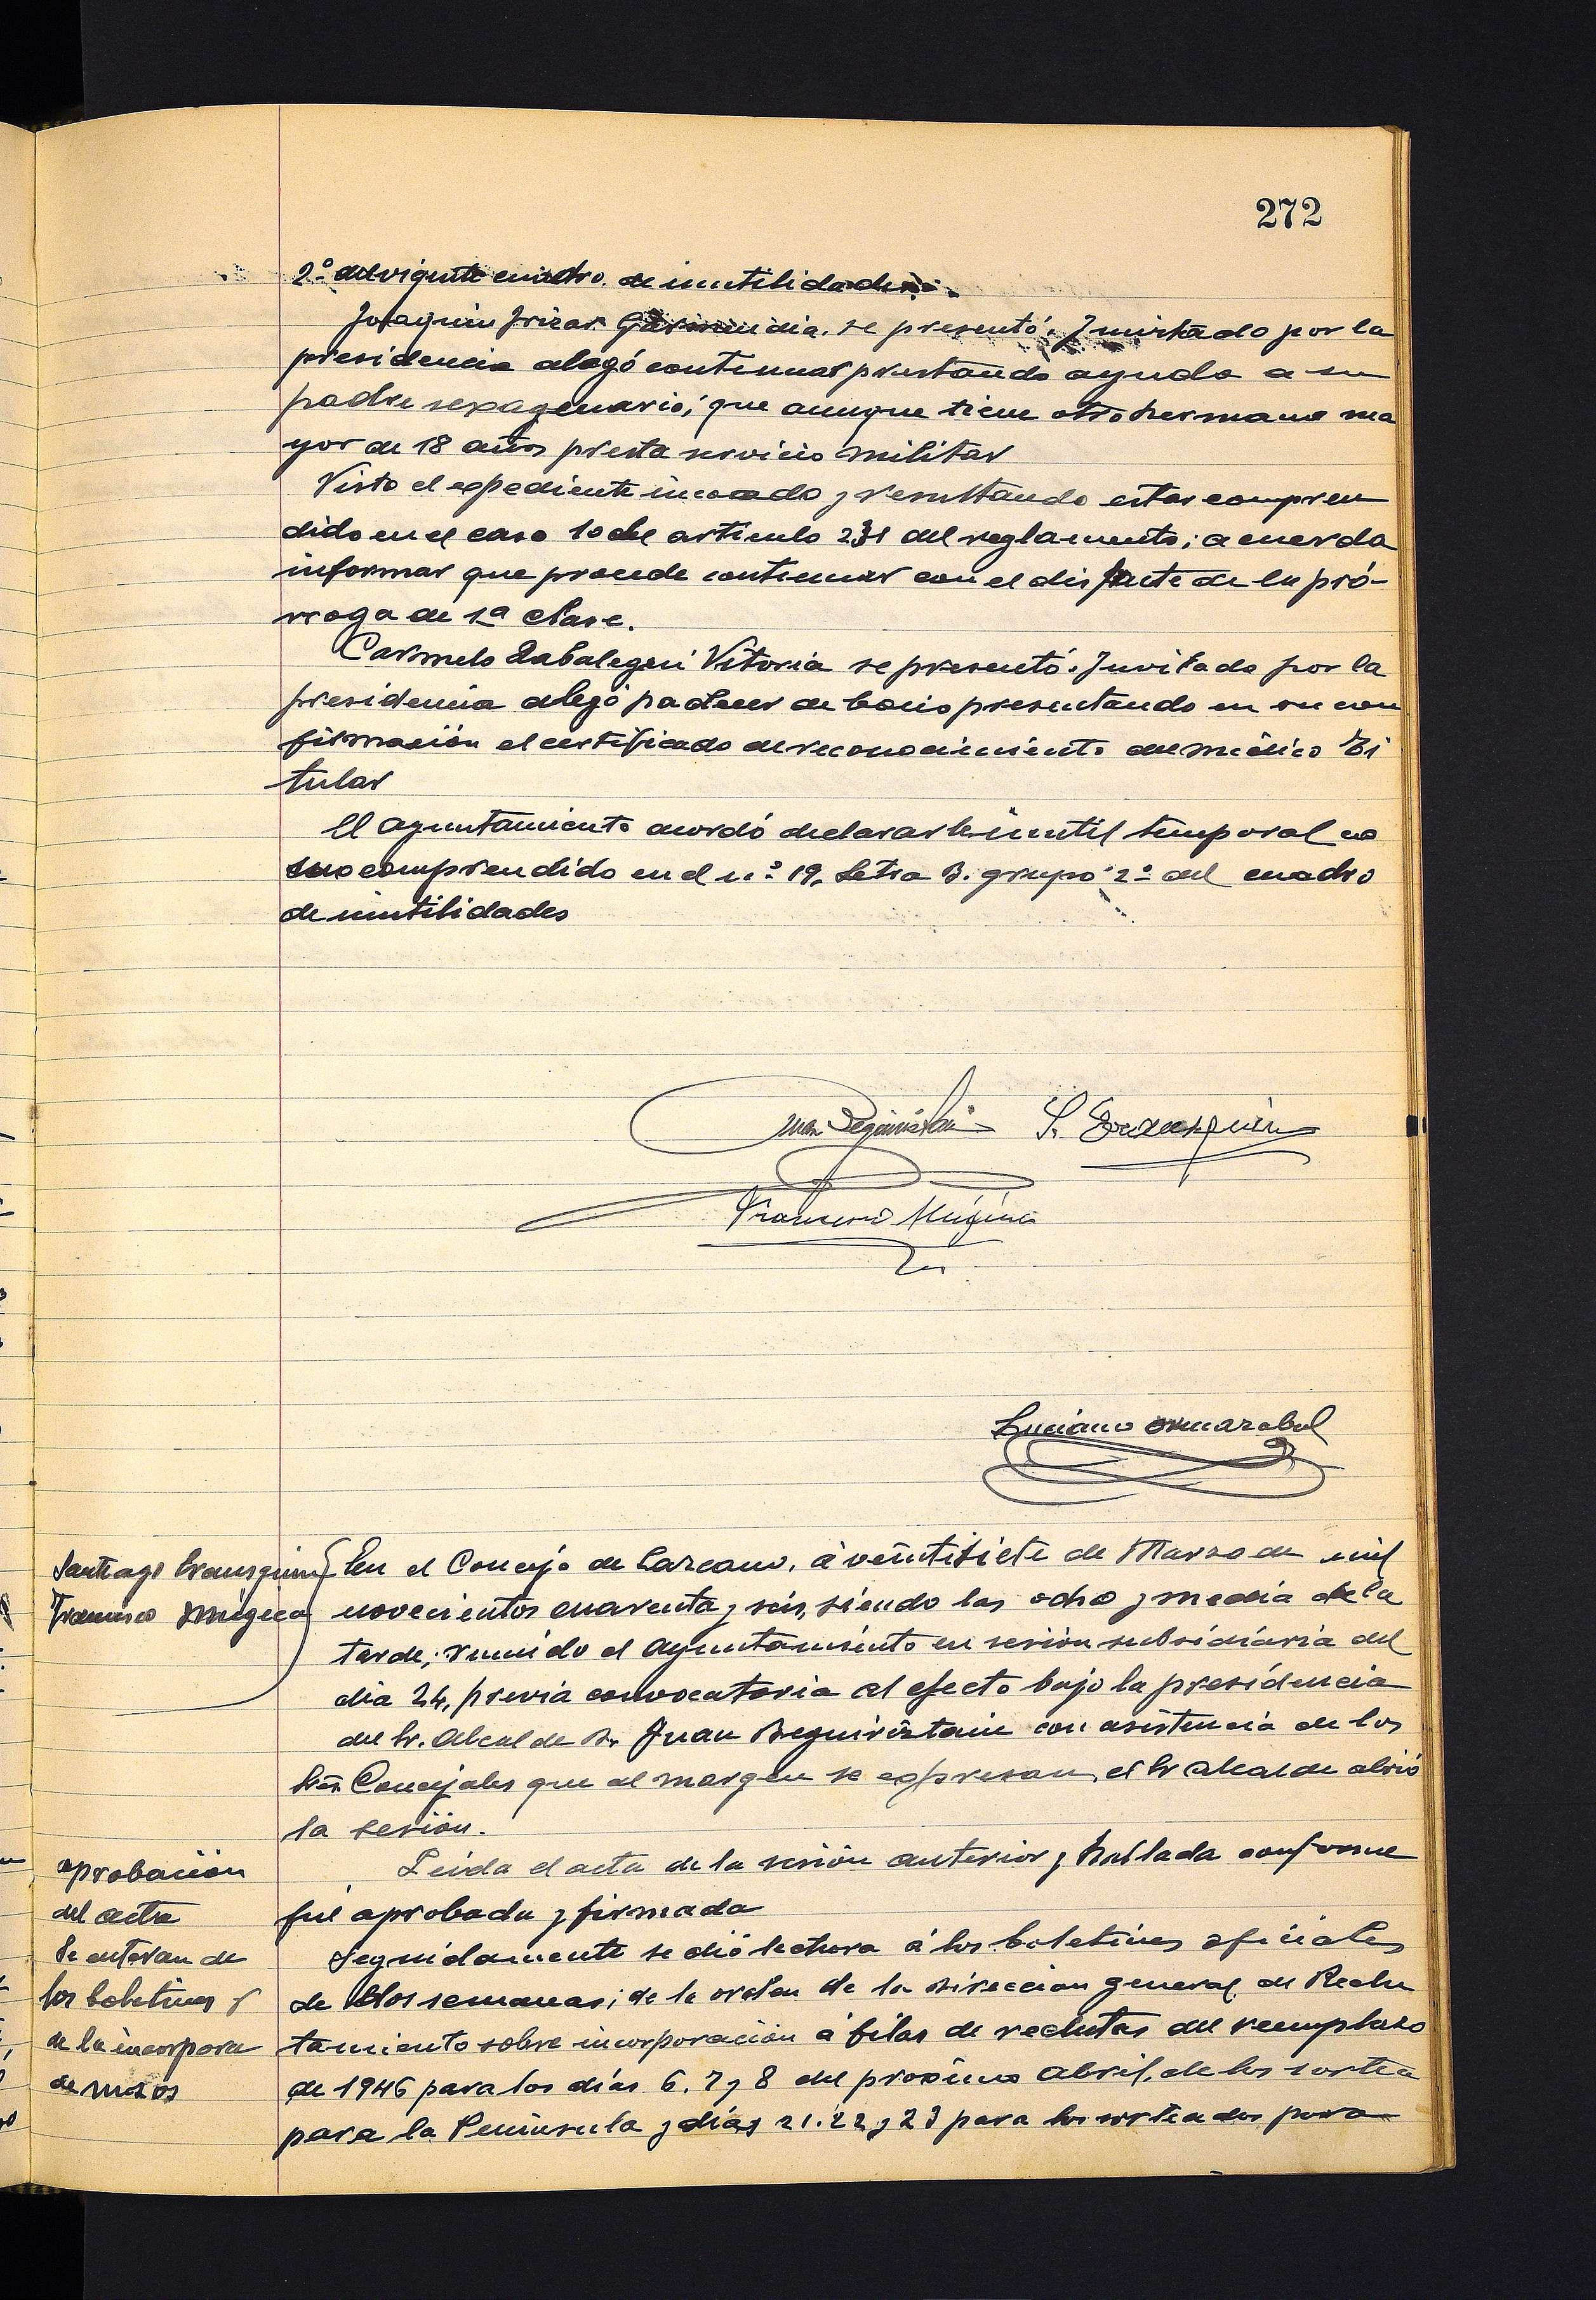 272
2º del vigente cuadro de inutilidades.
Joaquin Irizar Garmendia. se presentó. Invitado por la
presidencia alegó continuar prestando ayuda a su
padre sexagenario; que aunque tiene otro hermano ma
yor de 18 años presta servicio militar
Visto el expediente incoado y resultando estar compren
dido en el caso 1º del articulo 231 del reglamento; acuerda
informar que procede continuar con el disfrute de la pró-
rroga de 1ª clase.
Carmelo Zabalegui Vitoria se presentó. Invitado por la
presidencia alegó padecer de bocio presentando en su con
firmación el certificado de reconocimiento del médico ti
tular
El ayuntamiento acordó declararle inutil temporal co
mo comprendido en el nº 19, Letra B. grupo 2º del cuadro
de inutilidades
Juan Beguiristain S. Erausquin
Francisco Mugica
Luciano
Santiago Erausquin
Francisco Mugica
En el Concejo de Lazcano, á veintisiete de Marzo de mil
novecientos cuarenta y seis, siendo las ocho y media de la
tarde; reunido el Ayuntamiento en sesion subsidiaria del
dia 24, previa convocatoria al efecto bajo la presidencia
del Sr. Alcalde D. Juan Beguiristain con asistencia de los
Sres Concejales que al margen se expresan, el Sr Alcalde abrió
la sesión.
aprobación
del acta
Leida el acta de la sesión anterior y hallada conforme
fué aprobada y firmada
Se enteran de
los boletines y
de la incorpora
de mozos
Seguidamente se dió lectura á los boletines oficiales
de dos semanas; de la orden de la Direccion general de Reclu
tamiento sobre incorporación á filas de reclutas del reemplazo
de 1946 para los días 6. 7 y 8 del proximo Abril, de los sortea
para la Peninsula y días 21. 22 y 23 para los sorteados para